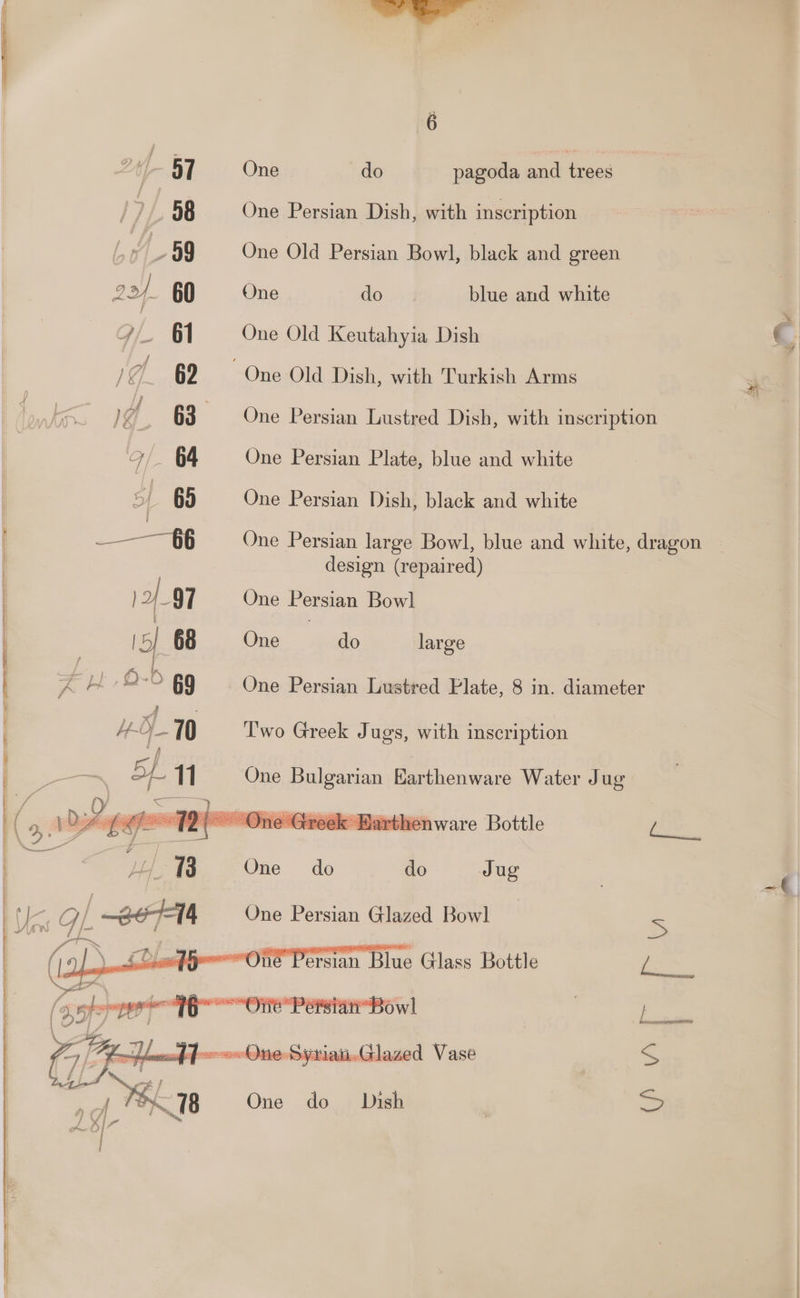 6
57 One do pagoda and trees
58 One Persian Dish, with inscription
59 One Old Persian Bowl, black and green
22/- 60 One do blue and white
9/- 61 One Old Keutahyia Dish
62 One Old Dish, with Turkish Arms
63 One Persian Lustred Dish, with inscription
9/- 64 One Persian Plate, blue and white
5/- 65 One Persian Dish, black and white
66 One Persian large Bowl, blue and white, dragon
design (repaired)
12/- 97 One Persian Bowl
15/ 68 One do large
69 One Persian Lustred Plate, 8 in. diameter
70 Two Greek Jugs, with inscription
5/- 11 One Bulgarian Earthenware Water Jug
72 One Greek Earthenware Bottle L
73 One do do Jug
9/ 74 One Persian Glazed Bowl S
12/ 75 One Persian Blue Glass Bottle L
76 One Persian Bowl L
77 One Syrian Glazed Vase S
78 One do Dish S